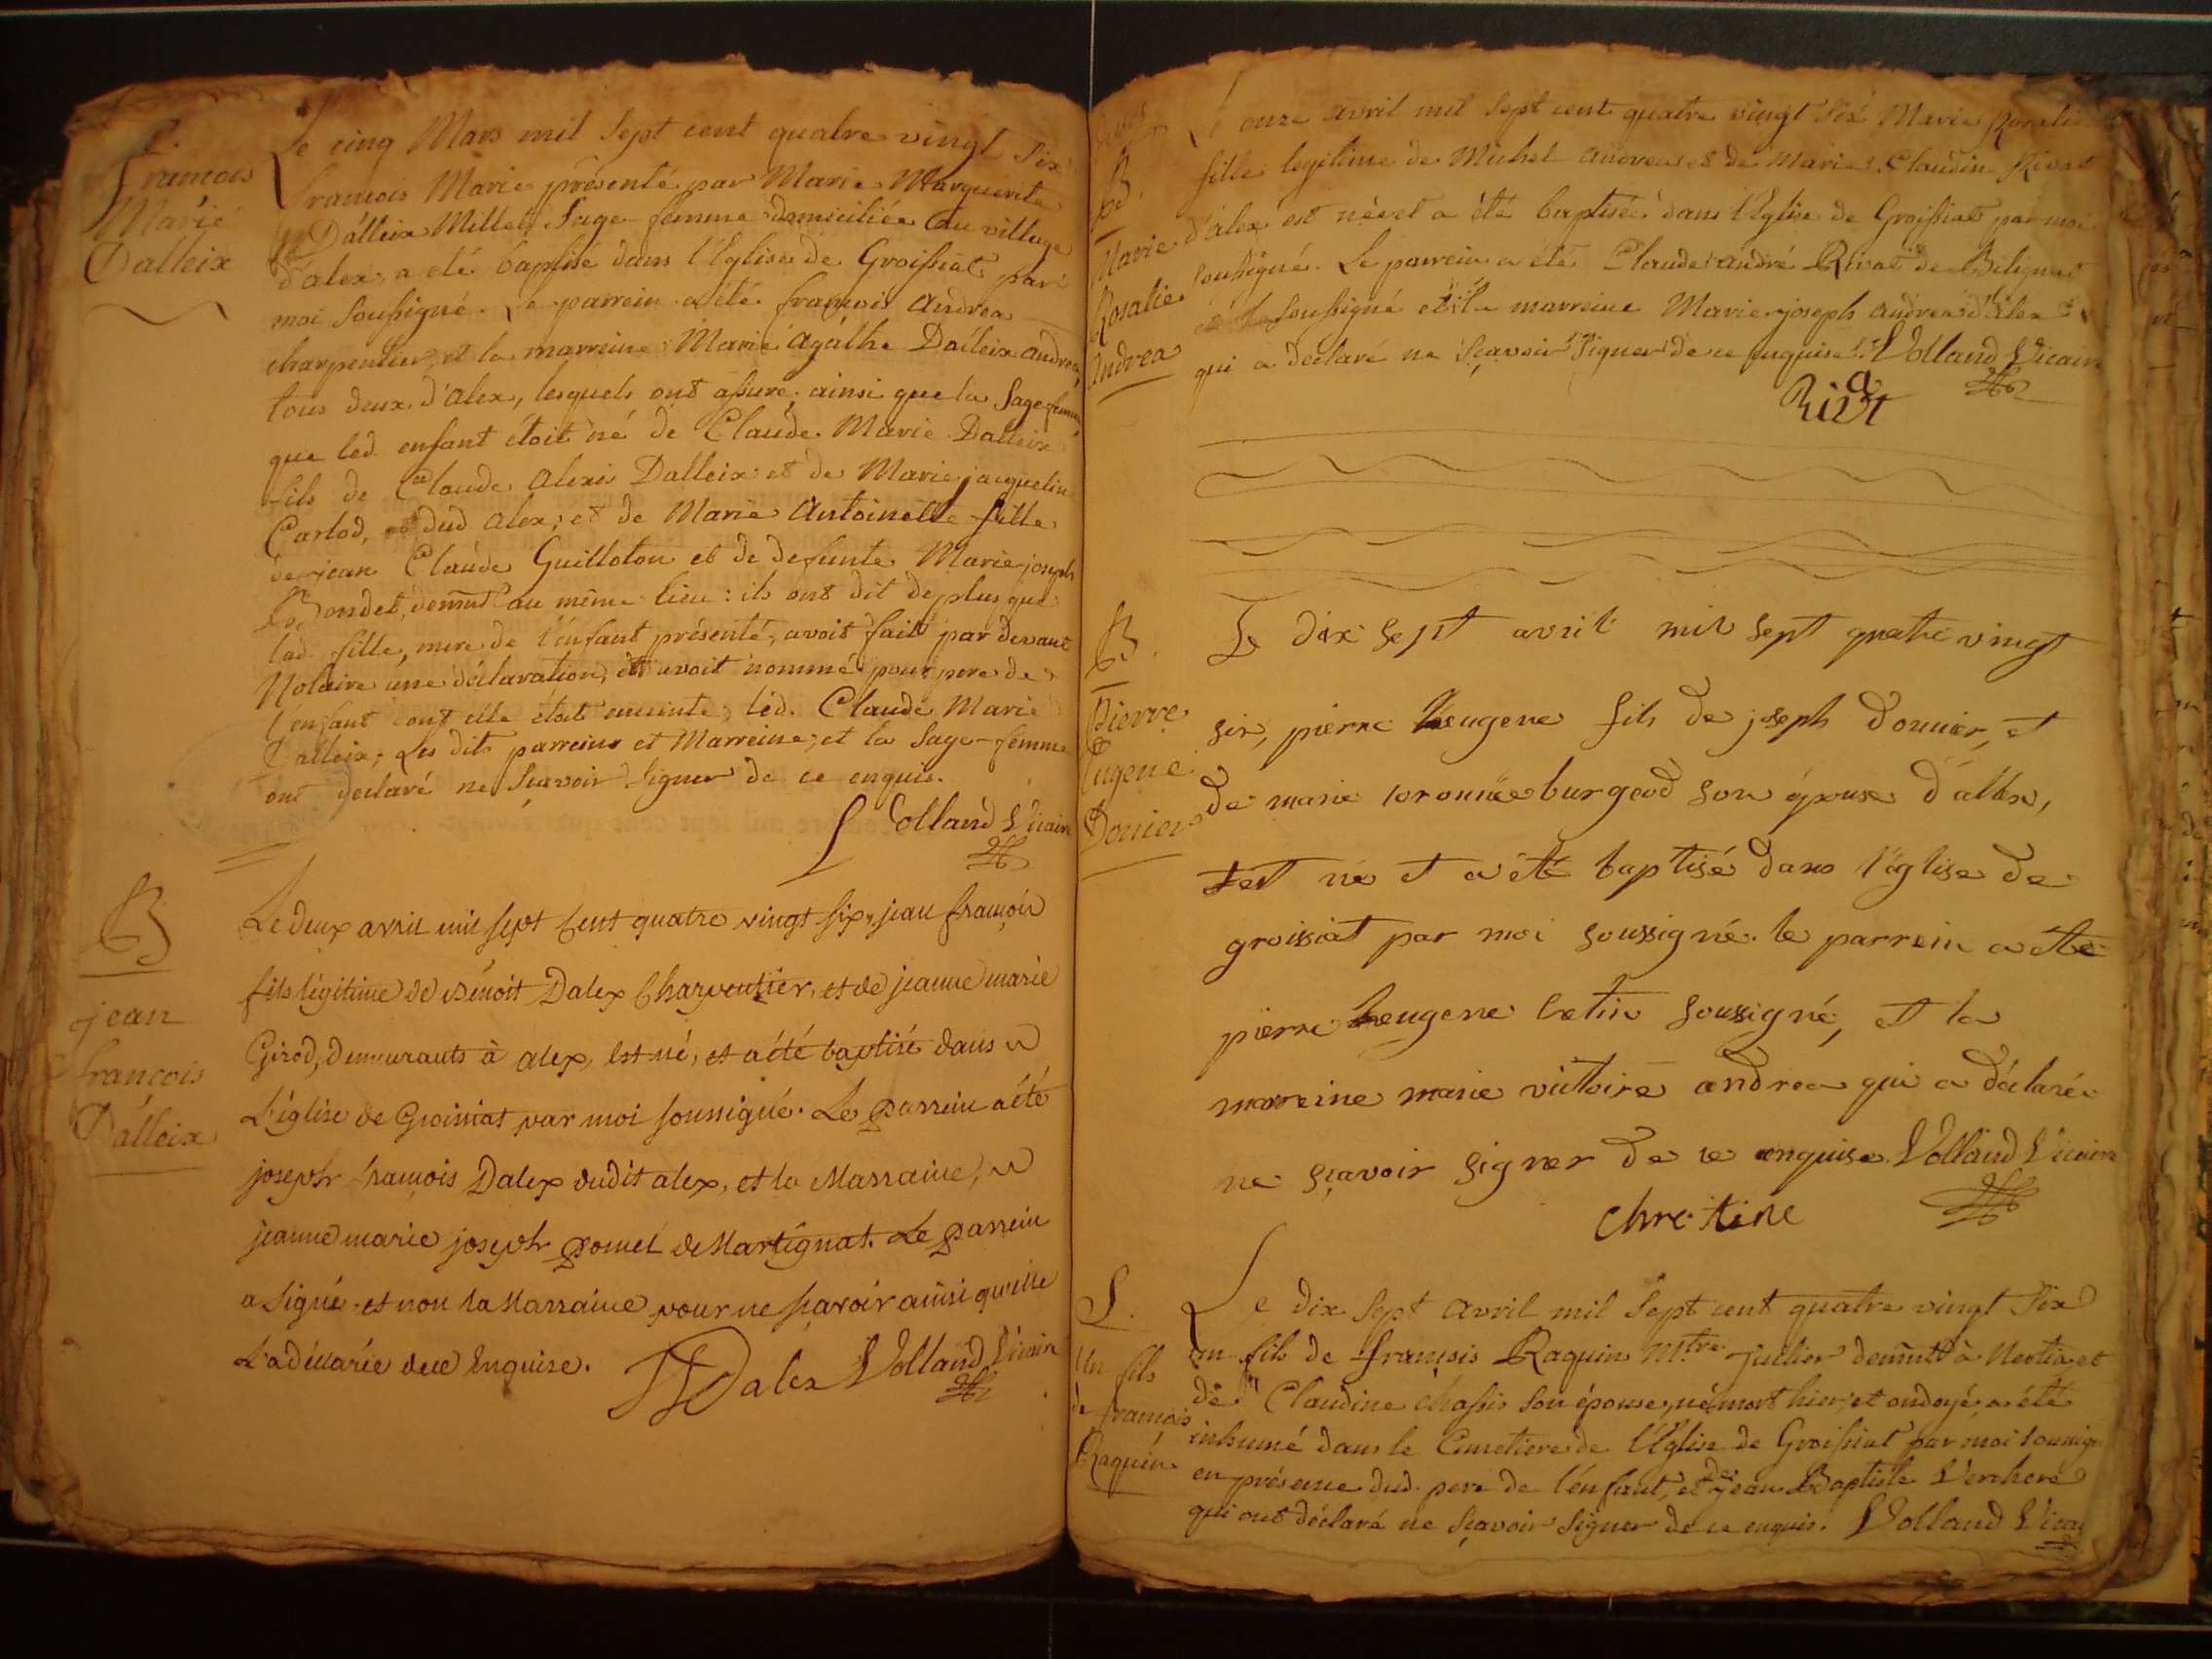 B.
francois
Marie
Dalleix
Le cinq Mars mil sept cent quatre vingt six
francois Marie présenté par Marie Marguerite
Dalleix Millet Sage-femme domiciliée du village
d'alex, a eté baptisé dans l'Eglise de Groissiat par
moi soussigné. Le parrein a été francois andrea
charpentier, et la marreine Marie Agathe Dalleix andrea,
tous deux d'alex, lesquels ont assuré, ainsi que la sage-femme,
que led. enfant étoit né de Claude Marie Dalleix
fils de Claude Alexis Dalleix et de Marie jacqueline
Carlod, dud alex; et de Marie Antoinette fille
de jean Claude Guilloton et de defunte Marie-joseph
Bondet, demnt au même lieu: ils ont dit de plus que
lad. fille, mere de l'enfant présenté, avoit fait par devant
Notaire une déclaration, et avoit nommé pour pere de
l'enfant dont elle étoit enceinte, led. Claude Marie
Dalleix; Les dits parreins et Marreine, et la Sage-femme
ont declaré ne Sçavoir signer de ce enquis.
Volland Vicaire
B
jean
francois
Dalleix
Le deux avril mil sept cent quatre vingt six, jean françois
fils légitime de Benoit Dalex Charpentier, et de jeanne marie
Girod, demeurants à alex, est né, et a été baptisé dans
L'église de Groissiat par moi soussigné. Le parrein a été
joseph françois Dalex dudit alex, et la Marraine,
jeanne marie joseph pomel de Martignat. Le parrein
a signé et non la Marraine pour ne sçavoir ainsi qu'elle
L'a déclarée de ce Enquise.
JF Dalex Volland Vicaire
B.
Marie
Rosalie
Andrea
Le onze avril mil sept cent quatre vingt six Marie Rosalie
fille legitime de Michel andrea et de Marie Claudine Rivat
d'alex est née et a été baptisée dans l'Eglise de Groissiat par moi
soussigné. Le parrein a été Claude andré Rivat de Bilignat
soussigné et la marreine Marie-joseph andrea d'alex
qui a declaré ne sçavoir signer de ce enquise. Volland Vicaire
B.
Pierre
Eugene
Donier
Le dix sept avril mil sept quatre vingt
six, pierre heugene fils de joseph donnier, et
de marie burgod son épouse d'allex,
est né et a été baptisé dans l'église de
groissiat par moi soussigné. le parrein a été
pierre heugene cretin soussigné, et la
marreine marie victoire andrea qui a déclarée
ne sçavoir signer de ce enquise. Volland Vicaire
S.
Un fils
de françois
Raquin
Le dix sept avril mil sept cent quatre vingt six
un fils de françois Raquin Mtre demnt à Nertia et
de Claudine chassis son épouse, né mort hier, et ondoyé a été
inhumé dans le Cimetiere de l'Eglise de Groissiat par moi soussigné
en présence dud. pere de l'enfant, et de jean Baptiste Verchere
qui ont déclaré ne sçavoir signer de ce enquis. Volland Vicai